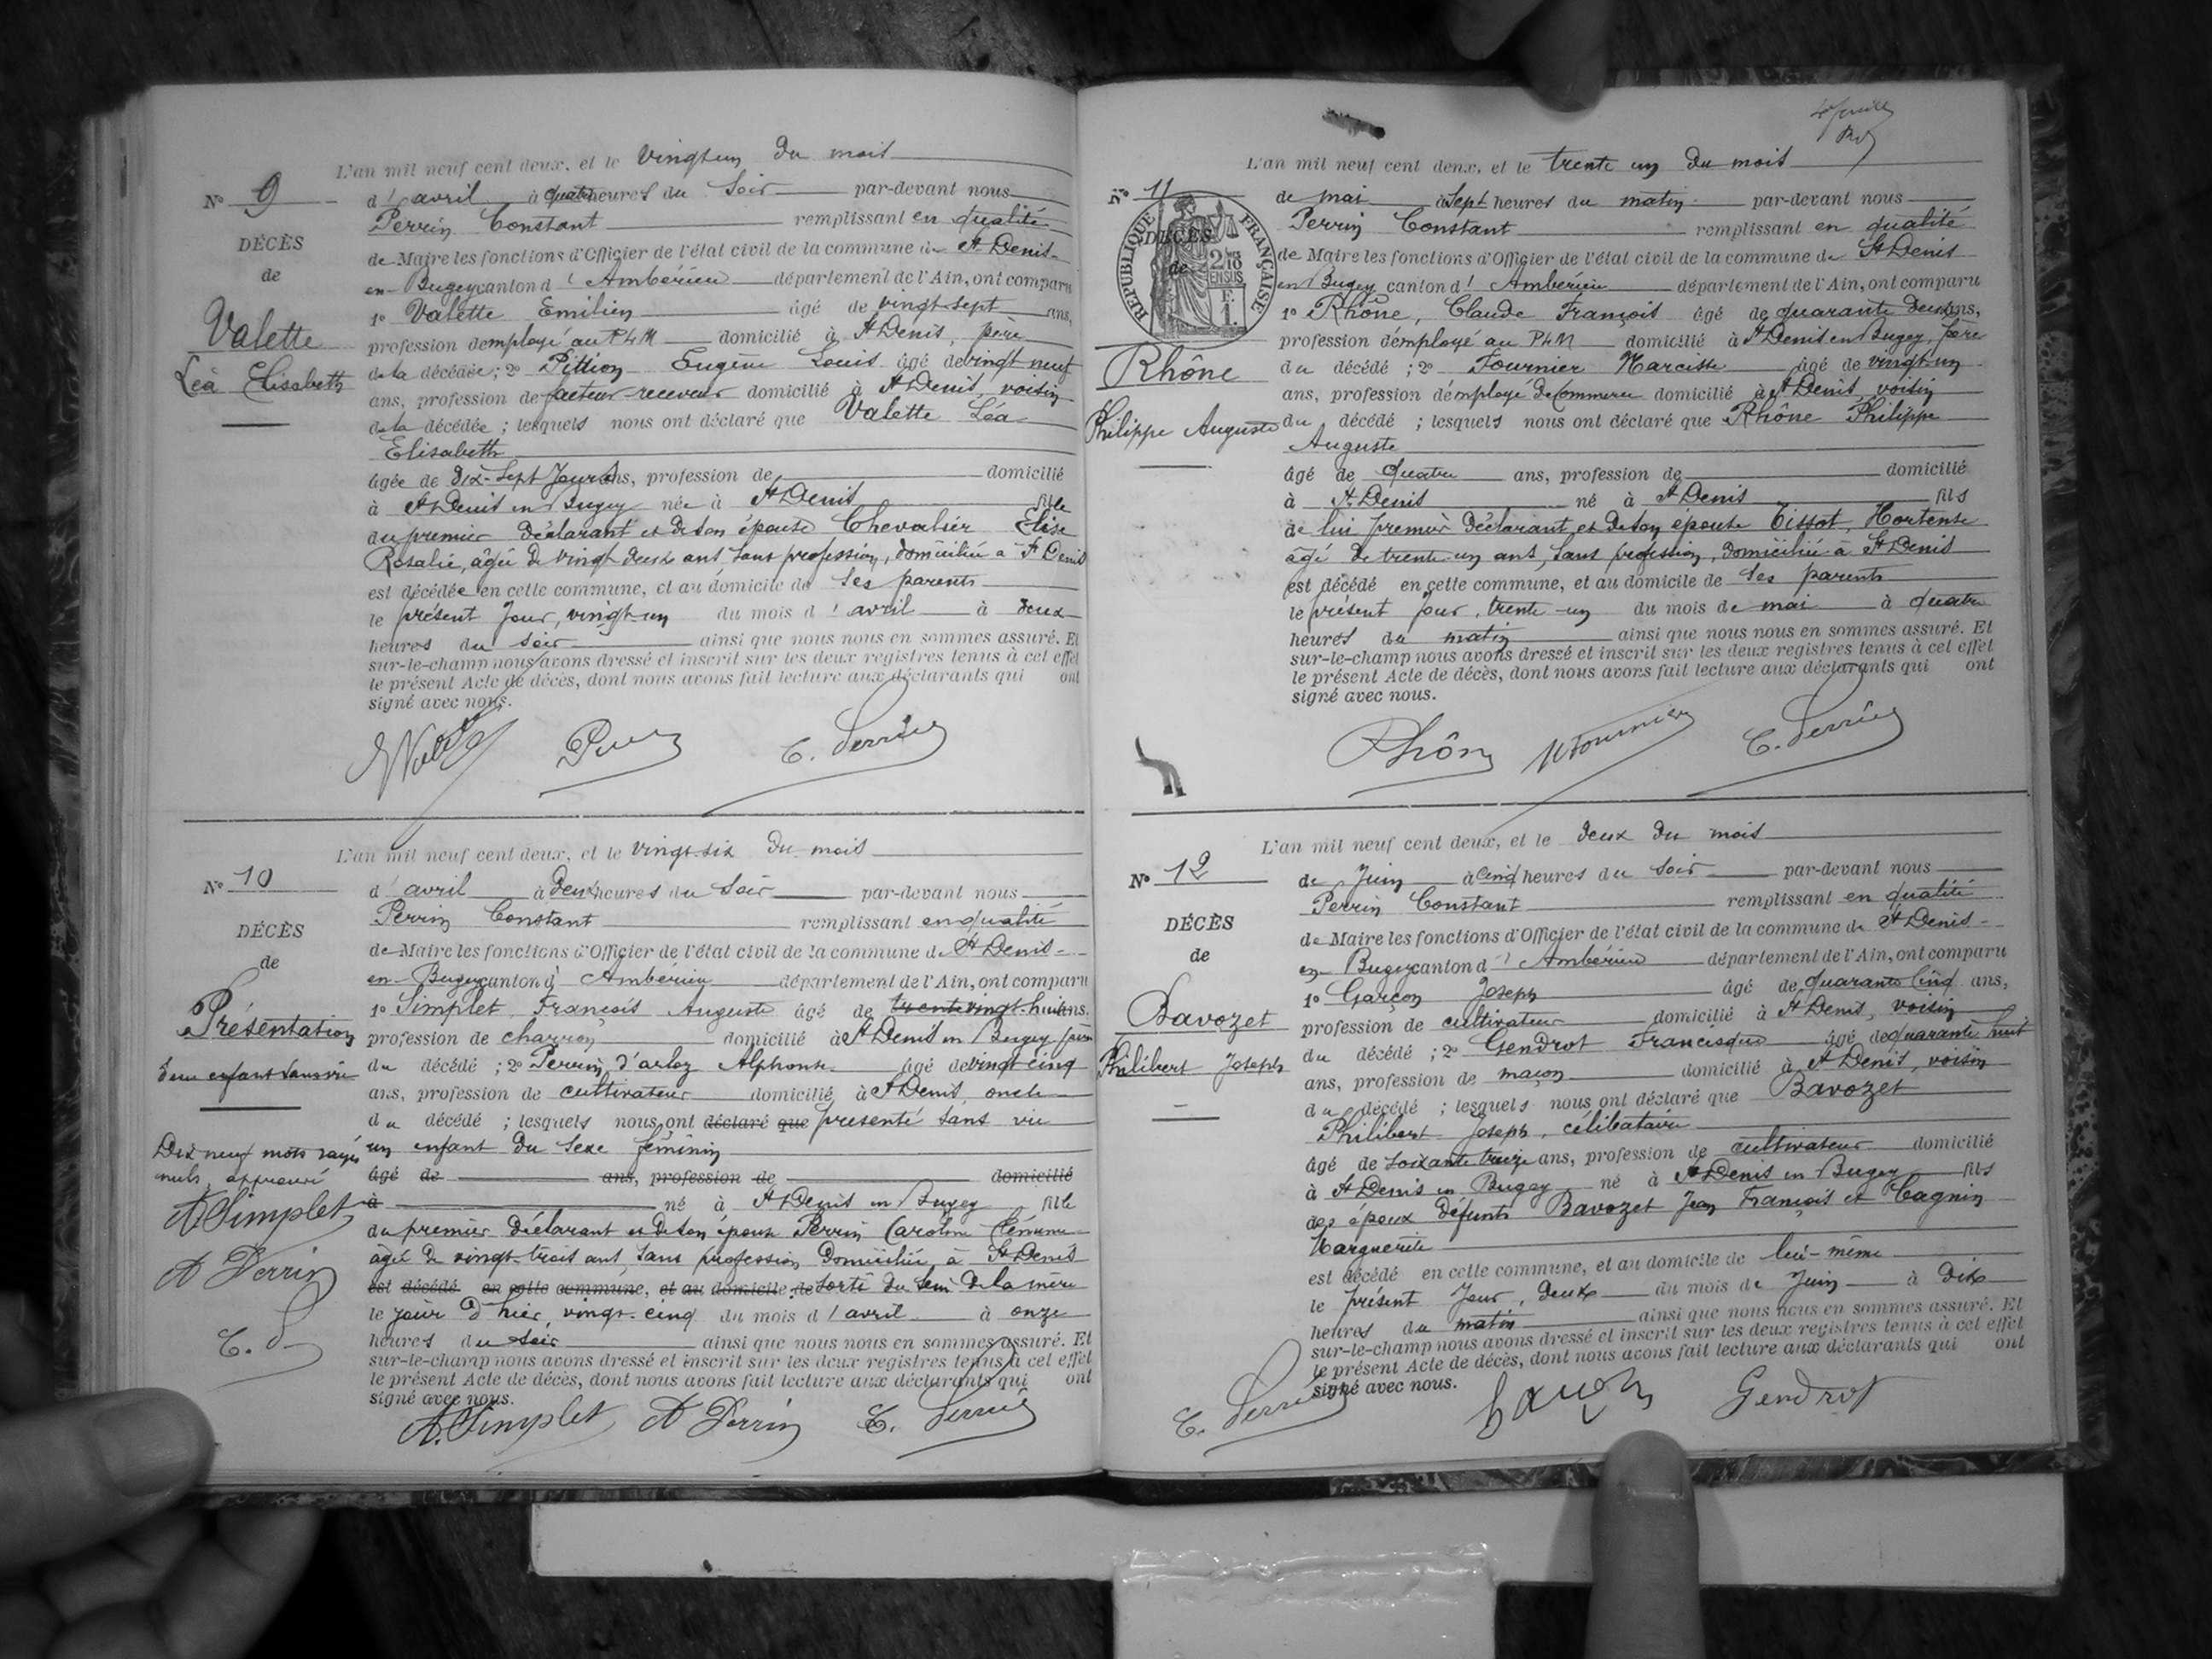 L'an mil neuf cent deux, et le vingt un du mois
N° 9
d'avril à quatre heures du soir par-devant nous
Perrin Constant remplissant en qualité
DÉCÈS
de Maire les fonctions d'Officier de l'état civil de la commune de St Denis-
de
en-Bugey canton d'Ambérieu département de l'Ain, ont comparu
1° Valette Emilien âgé de vingt-sept ans,
Valette
profession d'employé au PLM domicilié à St Denis, père
Léa Elisabeth
de la décédée; 2° Pittion Eugène Louis âgé de vingt neuf
ans, profession de facteur-receveur domicilié à St Denis, voisin
de la décédée; lesquels nous ont déclaré que Valette Léa
Elisabeth
âgée de dix-sept jours ans, profession de domicilié
à St Denis en Bugey née à St Denis fille
du premier déclarant et de son épouse Chevalier Elise
Rosalie, âgée de vingt deux ans, sans profession, domiciliée à St Denis
est décédée en cette commune, et au domicile de ses parents
le présent jour, vingt-un du mois d'avril à deux
heures du soir ainsi que nous nous en sommes assuré. Et
sur-le-champ nous avons dressé et inscrit sur les deux registres tenus à cet effet
le présent Acte de décès, dont nous avons fait lecture aux déclarants qui ont
signé avec nous.
C. Perrin
L'an mil neuf cent deux, et le vingt-six du mois
N° 10
d'avril à deux heures du soir par-devant nous
Perrin Constant remplissant en qualité
DÉCÈS
de Maire les fonctions d'Officier de l'état civil de la commune de St Denis-
de
en-Bugey canton d'Ambérieu département de l'Ain, ont comparu
1° Simplet François Auguste âgé de trente vingt-huit ans.
Présentation
profession de charron domicilié à St Denis en Bugey père
d'un enfant sans vie
du décédé; 2° Perrin d'arloz Alphonse âgé de vingt cinq
ans, profession de cultivateur domicilié à St Denis, oncle
du décédé; lesquels nous ont déclaré que présenté sans vie
un enfant du sexe féminin
Dix neuf mots rayés
nuls, approuvé
âgé de ans, profession de domicilié
A Simplet
à né à St Denis en Bugey fille
du premier déclarant et de son épouse Perrin Caroline
âgée de vingt-trois ans, sans profession domiciliée à St Denis
A Perrin
est décédé en cette commune, et au domicile de sorti du sein de la mère
le jour d'hier, vingt-cinq du mois d'avril à onze
C. P
heures du soir ainsi que nous nous en sommes assuré. Et
sur-le-champ nous avons dressé et inscrit sur les deux registres tenus à cet effet
le présent Acte de décès, dont nous avons fait lecture aux déclarants qui ont
signé avec nous.
A. Simplet A Perrin C. Perrin
L'an mil neuf cent deux, et le trente un du mois
N° 11
de mai à sept heures du matin par-devant nous
Perrin Constant remplissant en qualité
RÉPUBLIQUE FRANÇAISE
DÉCÈS
de Maire les fonctions d'Officier de l'état civil de la commune de St Denis
de
en Bugey canton d'Ambérieu département de l'Ain, ont comparu
1° Rhône, Claude François âgé de quarante deux ans,
profession d'employé au PLM domicilié à St Denis en Bugey, père
Rhône
du décédé; 2° Fournier Narcisse âgé de vingt-un
ans, profession d'employé de commerce domicilié à St Denis, voisin
Philippe Auguste
du décédé; lesquels nous ont déclaré que Rhône Philippe
Auguste
âgé de quatre ans, profession de domicilié
à St Denis né à St Denis fils
de lui premier déclarant et de son épouse Tissot, Hortense
âgé de trente-un ans, sans profession, domiciliée à St Denis
est décédé en cette commune, et au domicile de ses parents
le présent jour, trente-un du mois de mai à quatre
heures du matin ainsi que nous nous en sommes assuré. Et
sur-le-champ nous avons dressé et inscrit sur les deux registres tenus à cet effet
le présent Acte de décès, dont nous avons fait lecture aux déclarants qui ont
signé avec nous.
Rhône N Fournier C. Perrin
L'an mil neuf cent deux, et le deux du mois
N° 12
de Juin à cinq heures du soir par-devant nous
Perrin Constant remplissant en qualité
DÉCÈS
de Maire les fonctions d'Officier de l'état civil de la commune de St Denis-
de
en-Bugey canton d'Ambérieu département de l'Ain, ont comparu
1° Garçon Joseph âgé de quarante cinq ans,
Bavozet
profession de cultivateur domicilié à St Denis, voisin
Philibert Joseph
du décédé; 2° Gendrot Francisque âgé de quarante huit
ans, profession de maçon domicilié à St Denis, voisin
du décédé; lesquels nous ont déclaré que Bavozet
Philibert Joseph, célibataire
âgé de soixante treize ans, profession de cultivateur domicilié
à St Denis en Bugey né à St Denis en Bugey fils
des époux défunts Bavozet Jean François et Cagnin
Marguerite
est décédé en cette commune, et au domicile de lui-même
le présent jour, deux du mois de Juin à dix
heures du matin ainsi que nous nous en sommes assuré. Et
sur-le-champ nous avons dressé et inscrit sur les deux registres tenus à cet effet
le présent Acte de décès, dont nous avons fait lecture aux déclarants qui ont
signé avec nous.
C. Perrin Gendrot